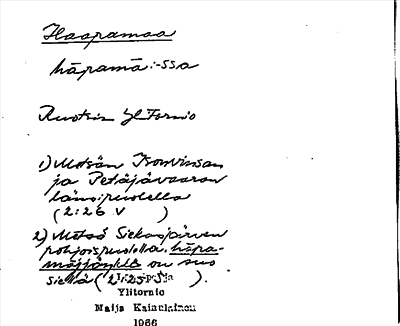 Haapamaa
häpämä:-ssa
Ruotsin Yl Tornio
1) Metsän Isovinsan
ja Petäjävaaran
länsipuolella
(2:26 V )
2) Metsä Siekasjärven
pohjoispuolella. häpä-
mä on suo
siellä (2:25 ).
Ylitornio
Maija Kainulainen
1966